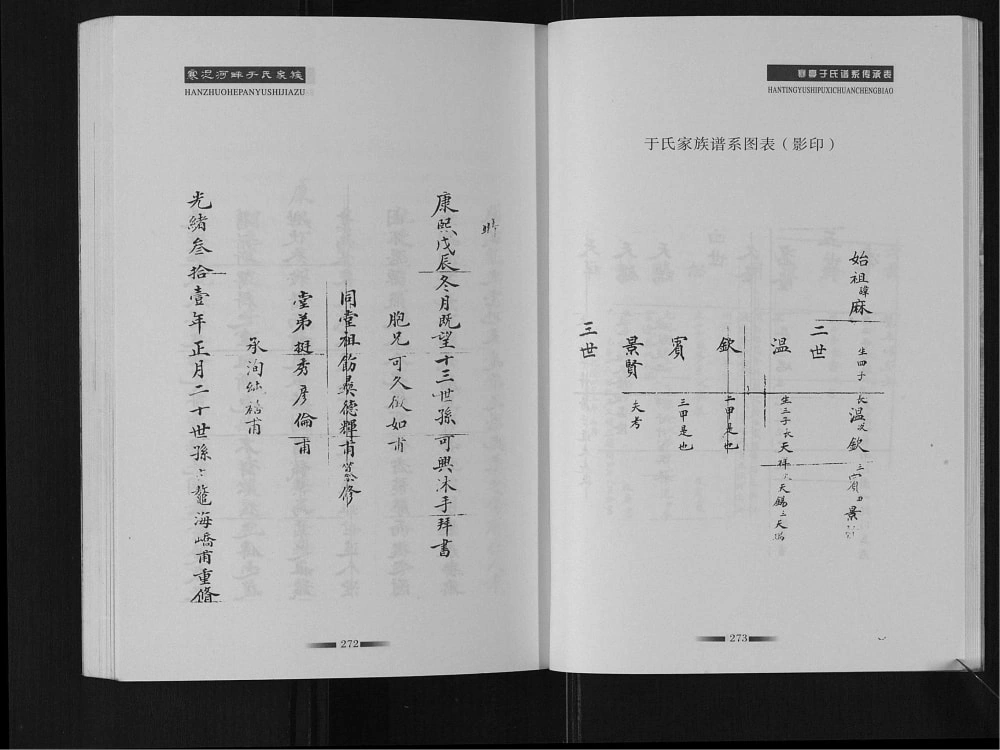 寒浞河畔于氏家族
HANZHUOHEPANYUSHIJIAZU
時
康熙戊辰冬月既望十三世孫可興沐手拜書
胞兄可久倣如甫
同堂祖德輝甫纂修
堂弟挺秀彦倫甫
承洵
光緒叁拾壹年正月二十世孫鼇海嶠甫重脩
272
寒亭于氏谱系传承表
HANTINGYUSHIPUXICHUANCHENGBIAO
于氏家族谱系图表（影印）
始祖諱麻
生四子 長溫次欽三賓四景
二世
溫
生三子長天祥次天錫三天
欽
二甲是也
賓
三甲是也
景賢
失考
三世
273